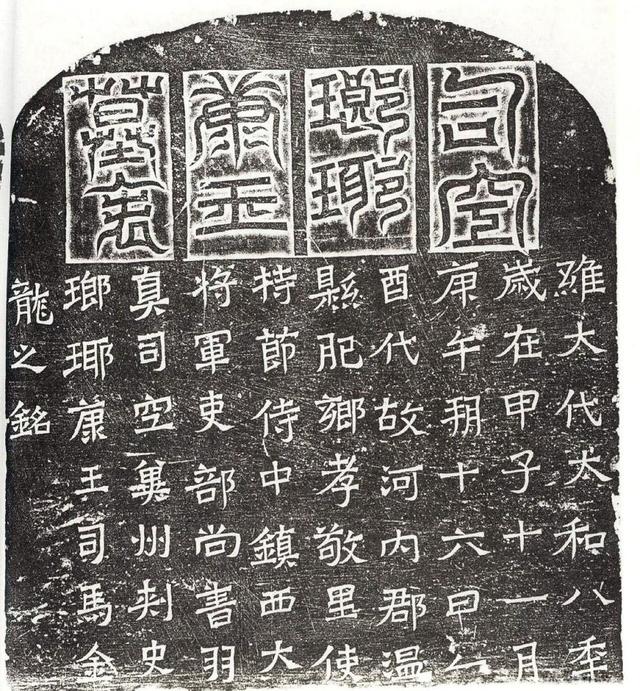 司空
瑯琊
康王
墓表
維大代太和八年
歲在甲子十一月
庚午朔十六日乙
酉代故河內郡溫
縣肥鄉孝敬里使
持節侍中鎮西大
將軍吏部尚書羽
真司空冀州刺史
瑯琊康王司馬金
龍之銘